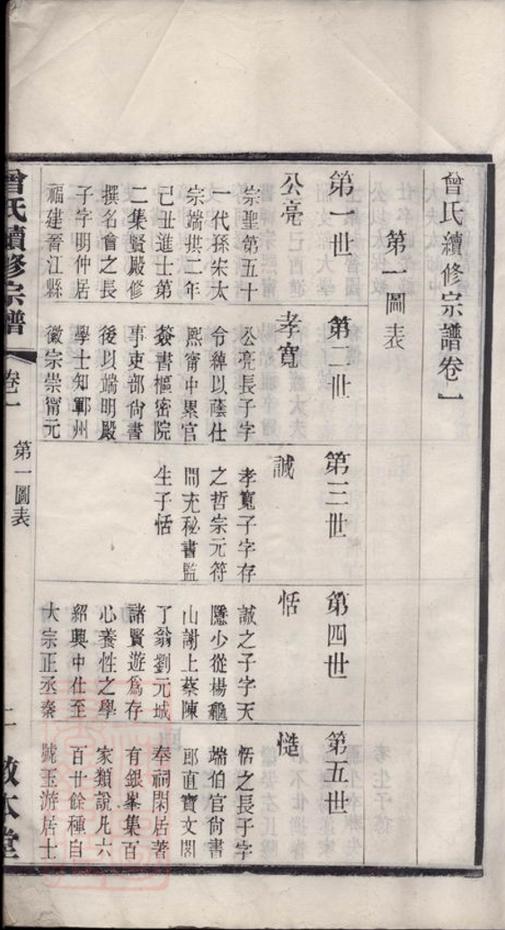 曾氏續修宗譜卷一
第一圖表
第一世
公亮
宗聖第五十
一代孫宋太
宗端拱二年
己丑進士第
二集賢殿修
撰名會之長
子字明仲居
福建晉江縣
第二世
孝寬
公亮長子字
令綽以蔭仕
熙甯中累官
簽書樞密院
事吏部尚書
後以端明殿
學士知鄆州
徽宗崇甯元
第三世
誠
孝寬子字存
之哲宗元符
間充秘書監
生子恬
第四世
恬
誠之子字天
隱少從楊龜
山謝上蔡陳
了翁劉元城
諸賢遊為存
心養性之學
紹興中仕至
大宗正丞秦
第五世
慥
恬之長子字
端伯官尚書
郎直寶文閣
奉祠閑居著
有銀峯集百
家類說凡六
百廿餘種自
號至游居士
曾氏續修宗譜
卷一
第一圖表
二
敬本堂